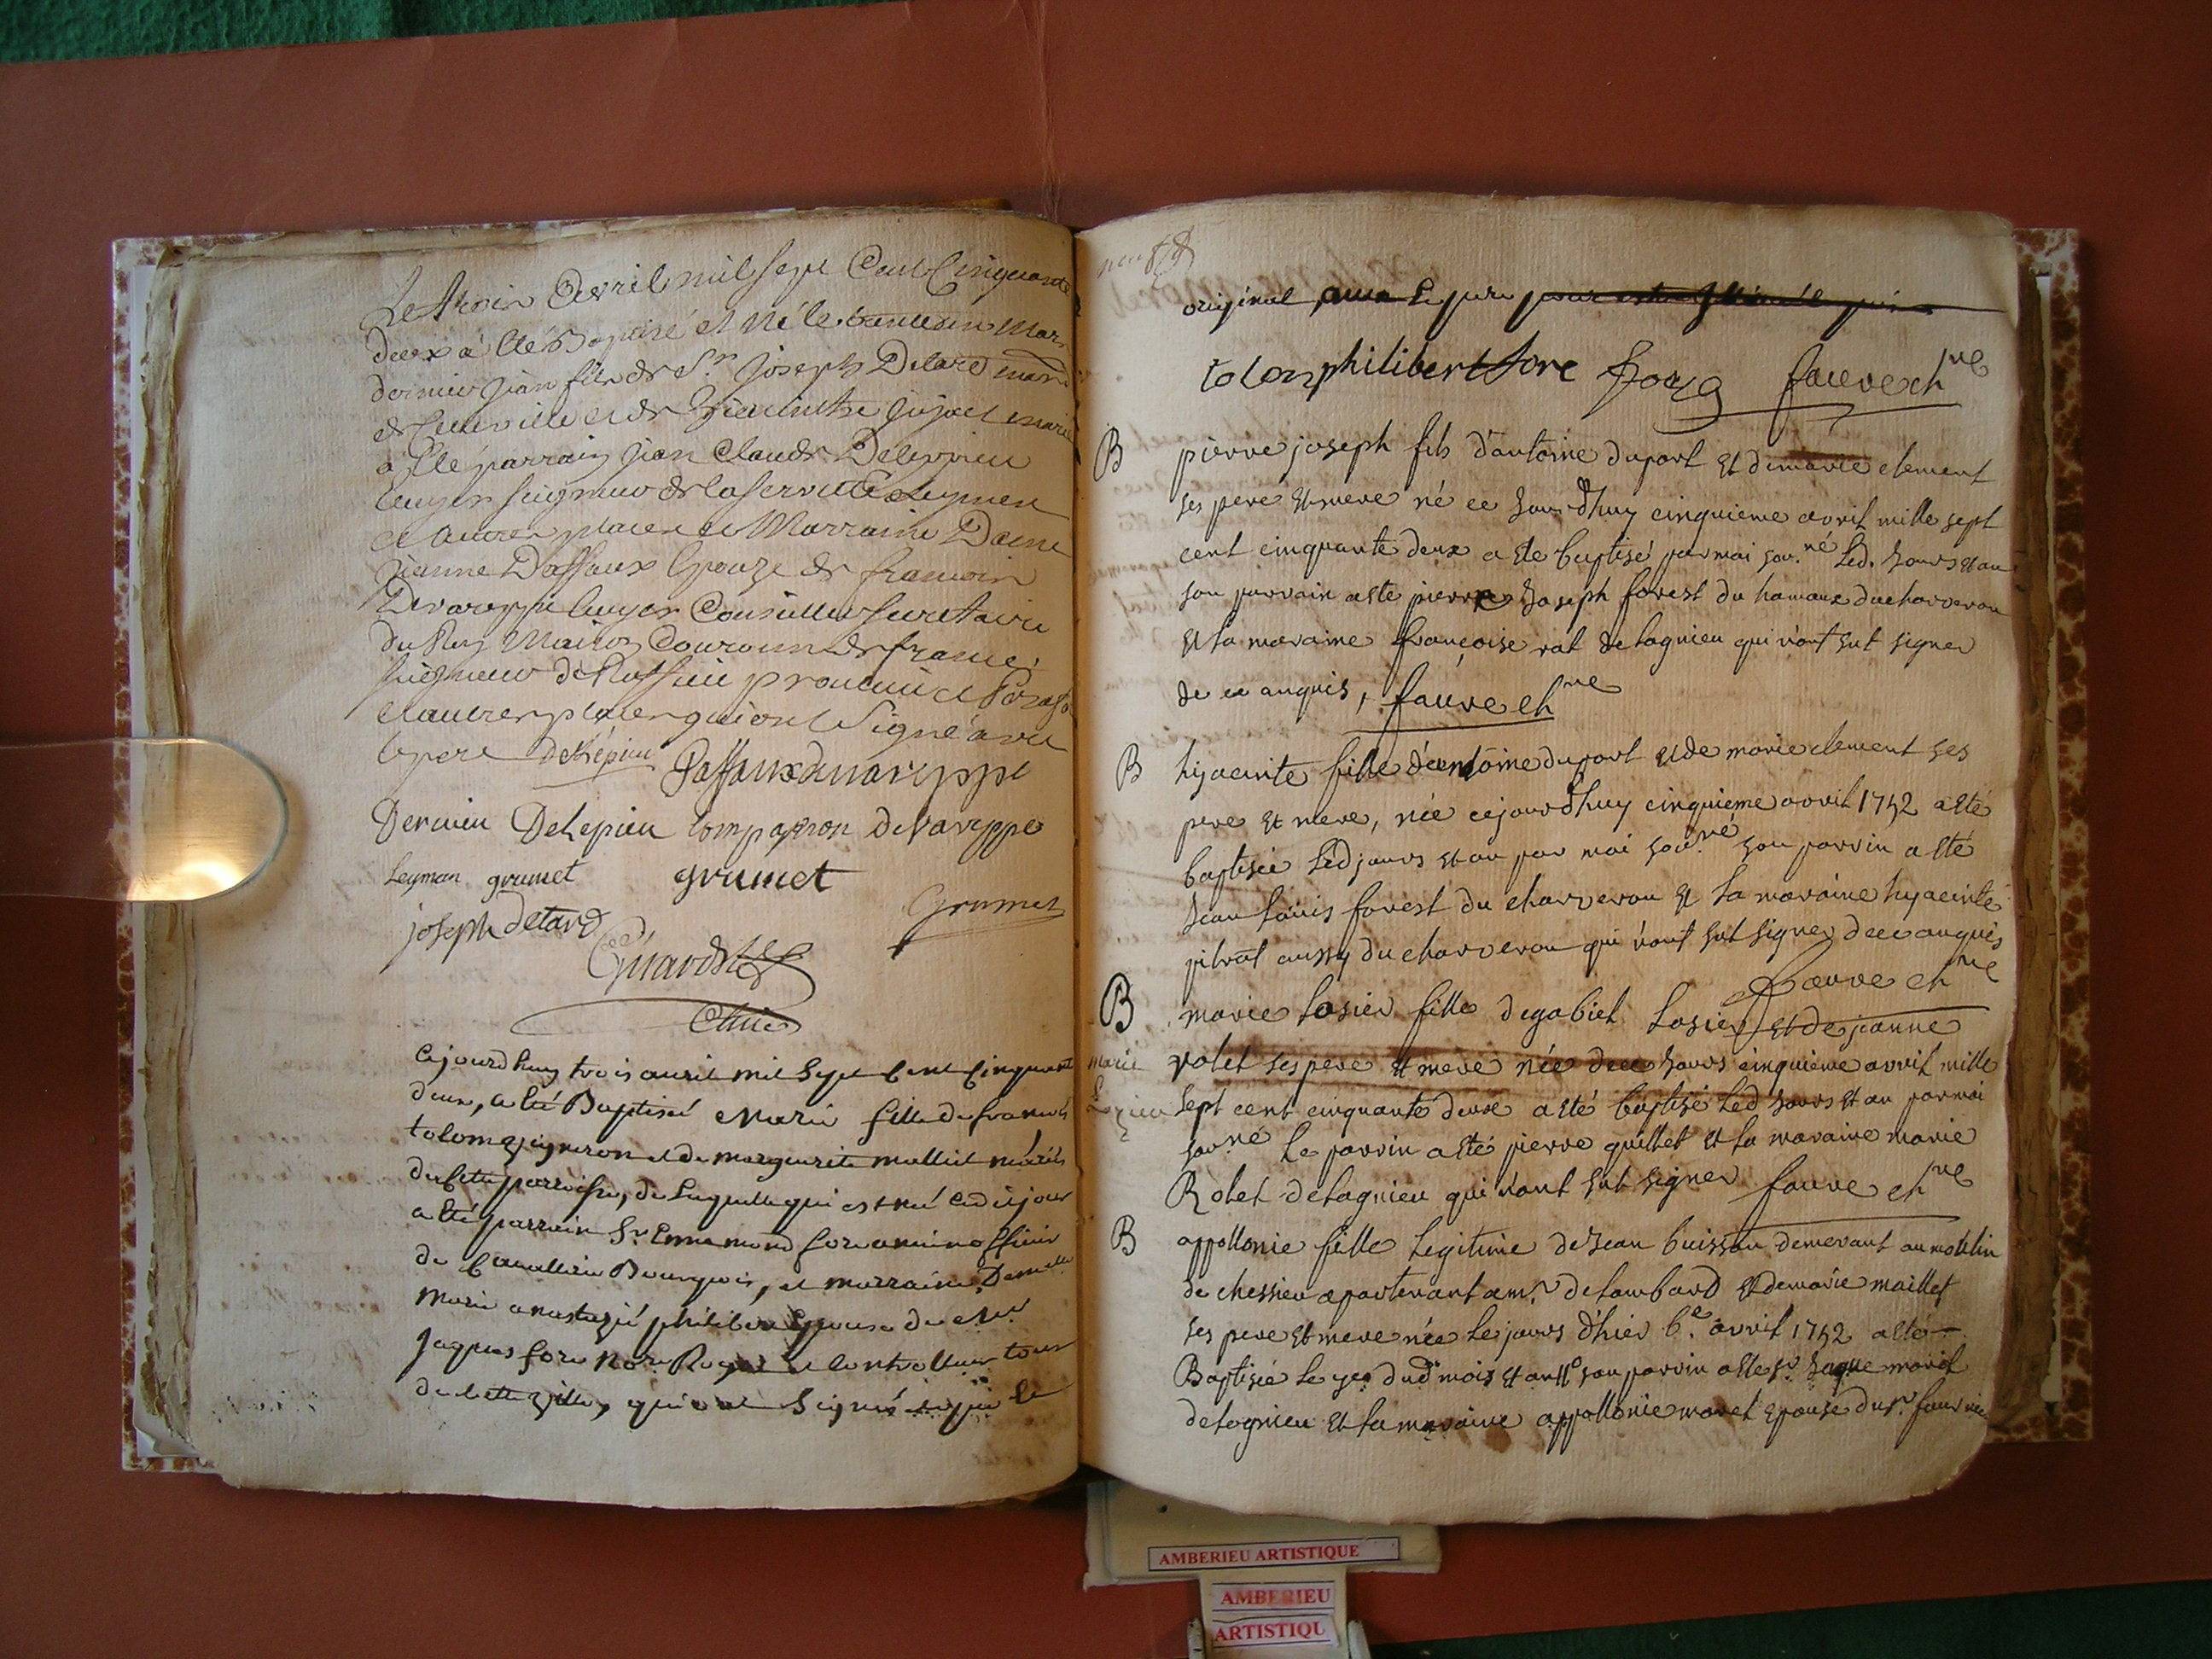 Le trois Avril mil sept Cent Cinquante
deux a été Baptisé et né le mars
dernier jean fils de Sr. Joseph Delard
et de Hiacinthe
a été parrain jean Claude Delepieu
seigneur de
et autres places et Marraine Dame
jeanne Daffaux Epouze de francois
Devareppe Conseiller secretaire
du Roy Maison Couronne de france,
seigneur de
et autres places qui ont Signé avec
le pere delépieu Daffaux devareppe
Dervieu Delepieu Compagnon de Vareppe
Leyman grumet grumet
joseph delard Grumet
Girard
Curé
Cejourdhuy trois avril mil Sept Cent Cinquante
deux, a été Baptisé Marie fille de francois
tolom vigneron et de marguerite mariés
de Cette parroisse, de Laquelle qui est né ledit jour
a été parrain Sr. Ennemond fore officier
de Bourgeois, et marraine Demelle
Marie anastazie philibert Epouse de Me
Jaques fore Royal et
de Cette ville, qui ont Signé icy Le
original avec Le pere
tolon philibert fore fore fauve chne
B pierre joseph fils d'antoine duport et de marie clement
ses pere et mere né ce jourdhuy cinquieme avril mille sept
cent cinquante deux a ete baptisé par moi sou.né Led. jours et an
son parrain a ete pierre Joseph forest du hamaux du charveron
et la maraine françoise rat de lagnieu qui n'ont sut signer
de ce anquis, fauve chne
B hijacinte fille d'antoine duport et de marie clement ses
pere et mere, née cejourdhuy cinquieme avril 1752 a eté
baptisée Led jours et an par moi sou.né son parrin a eté
Jean Louis forest du charveron et la maraine hyacinte
pitrat aussy du charveron qui n'ont sut signer de ce anquis
fauve chne
B marie Losier fille de gabiel Losier et de jeanne
marie rolet ses pere et mere née de ce jours cinquieme avril mille
Lozier sept cent cinquante deux a eté baptisé Led jours et an par moi
sou.né Le parrin a eté pierre quillet et la maraine marie
Rolet de lagnieu qui n'ont sut signer fauve chne
B appollonie fille Legitime de Jean buisson demerant au moulin
de chessieu apartenant a mr. de lombard et de marie maillet
ses pere et mere née le jours d'hier 6.e avril 1752 a eté
Baptisée le 7e dud mois et an son parrin a ete sr. Jaque morel
de lagnieu et la maraine appollonie morel epouse du sr.
AMBERIEU ARTISTIQUE
AMBERIEU
ARTISTIQU